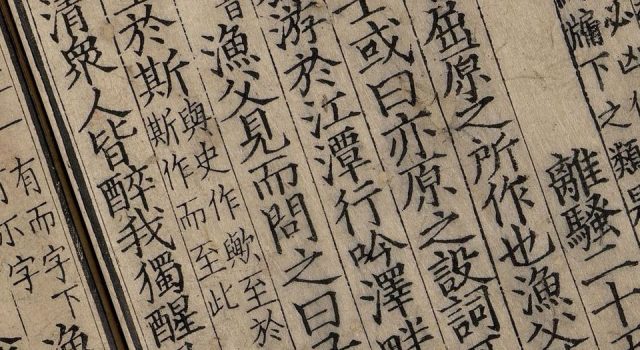 必凶作
牖下之類
離騷二十
屈原之所作也漁父
或曰亦原之設詞
游於江潭行吟澤畔
漁父見而問之曰子
於斯
與史作歟至於
斯作而至此
清衆人皆醉我獨醒
有而字下
示字
漁